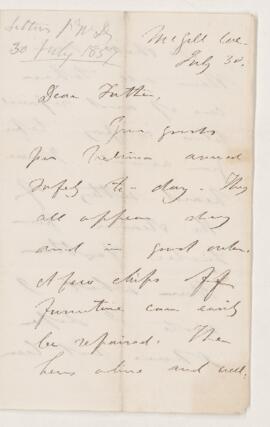 30 July 1857
McGill Col.
July 30.
Dear Father,
Your goods
per arrived
safely to-day. They
all appear dry
and in good order.
A few chips off
furniture can easily
be repaired. The
hens alive and well.